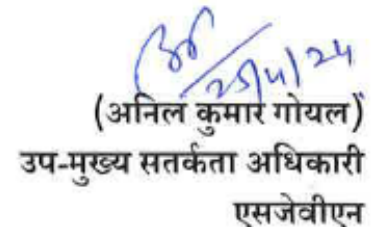 25/4/24
(अनिल कुमार गोयल)
उप-मुख्य सतर्कता अधिकारी
एसजेवीएन